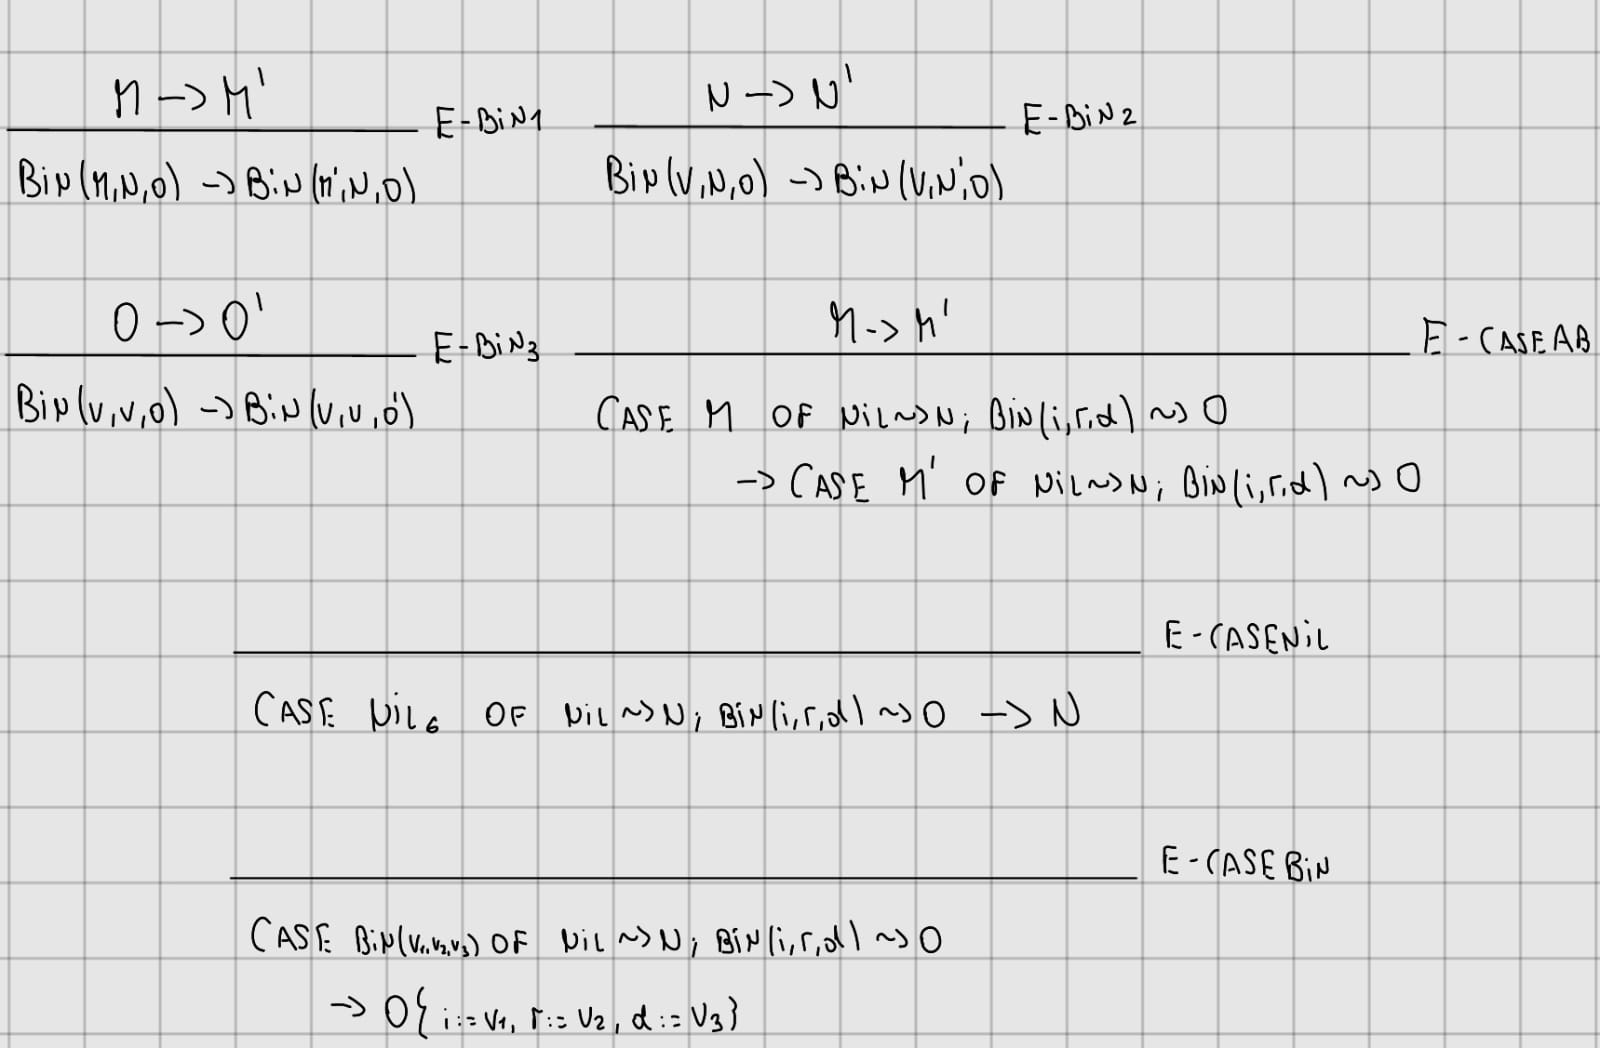 M -> M' E-BiN1 N -> N' E-BiN2
BiN(M,N,O) -> BiN(M',N,O) BiN(V,N,O) -> BiN(V,N',O)
O -> O' E-BiN3 M -> M' E-CASEAB
BiN(V,V,O) -> BiN(V,V,O') CASE M OF NiL ~> N; BiN(i,r,d) ~> O
-> CASE M' OF NiL ~> N; BiN(i,r,d) ~> O
E-CASENiL
CASE NiL6 OF NiL ~> N; BiN(i,r,d) ~> O -> N
E-CASEBiN
CASE BiN(V1,V2,V3) OF NiL ~> N; BiN(i,r,d) ~> O
-> O{i:=V1, r:=V2, d:=V3}